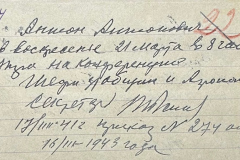 22
Антон Антонович
в воскресенье 21 марта в 8 час
утра на конференцию
Шефы Рабочий и Агроном
Секретар
17/III-412 приказ N 274 от
16/III-1943 года